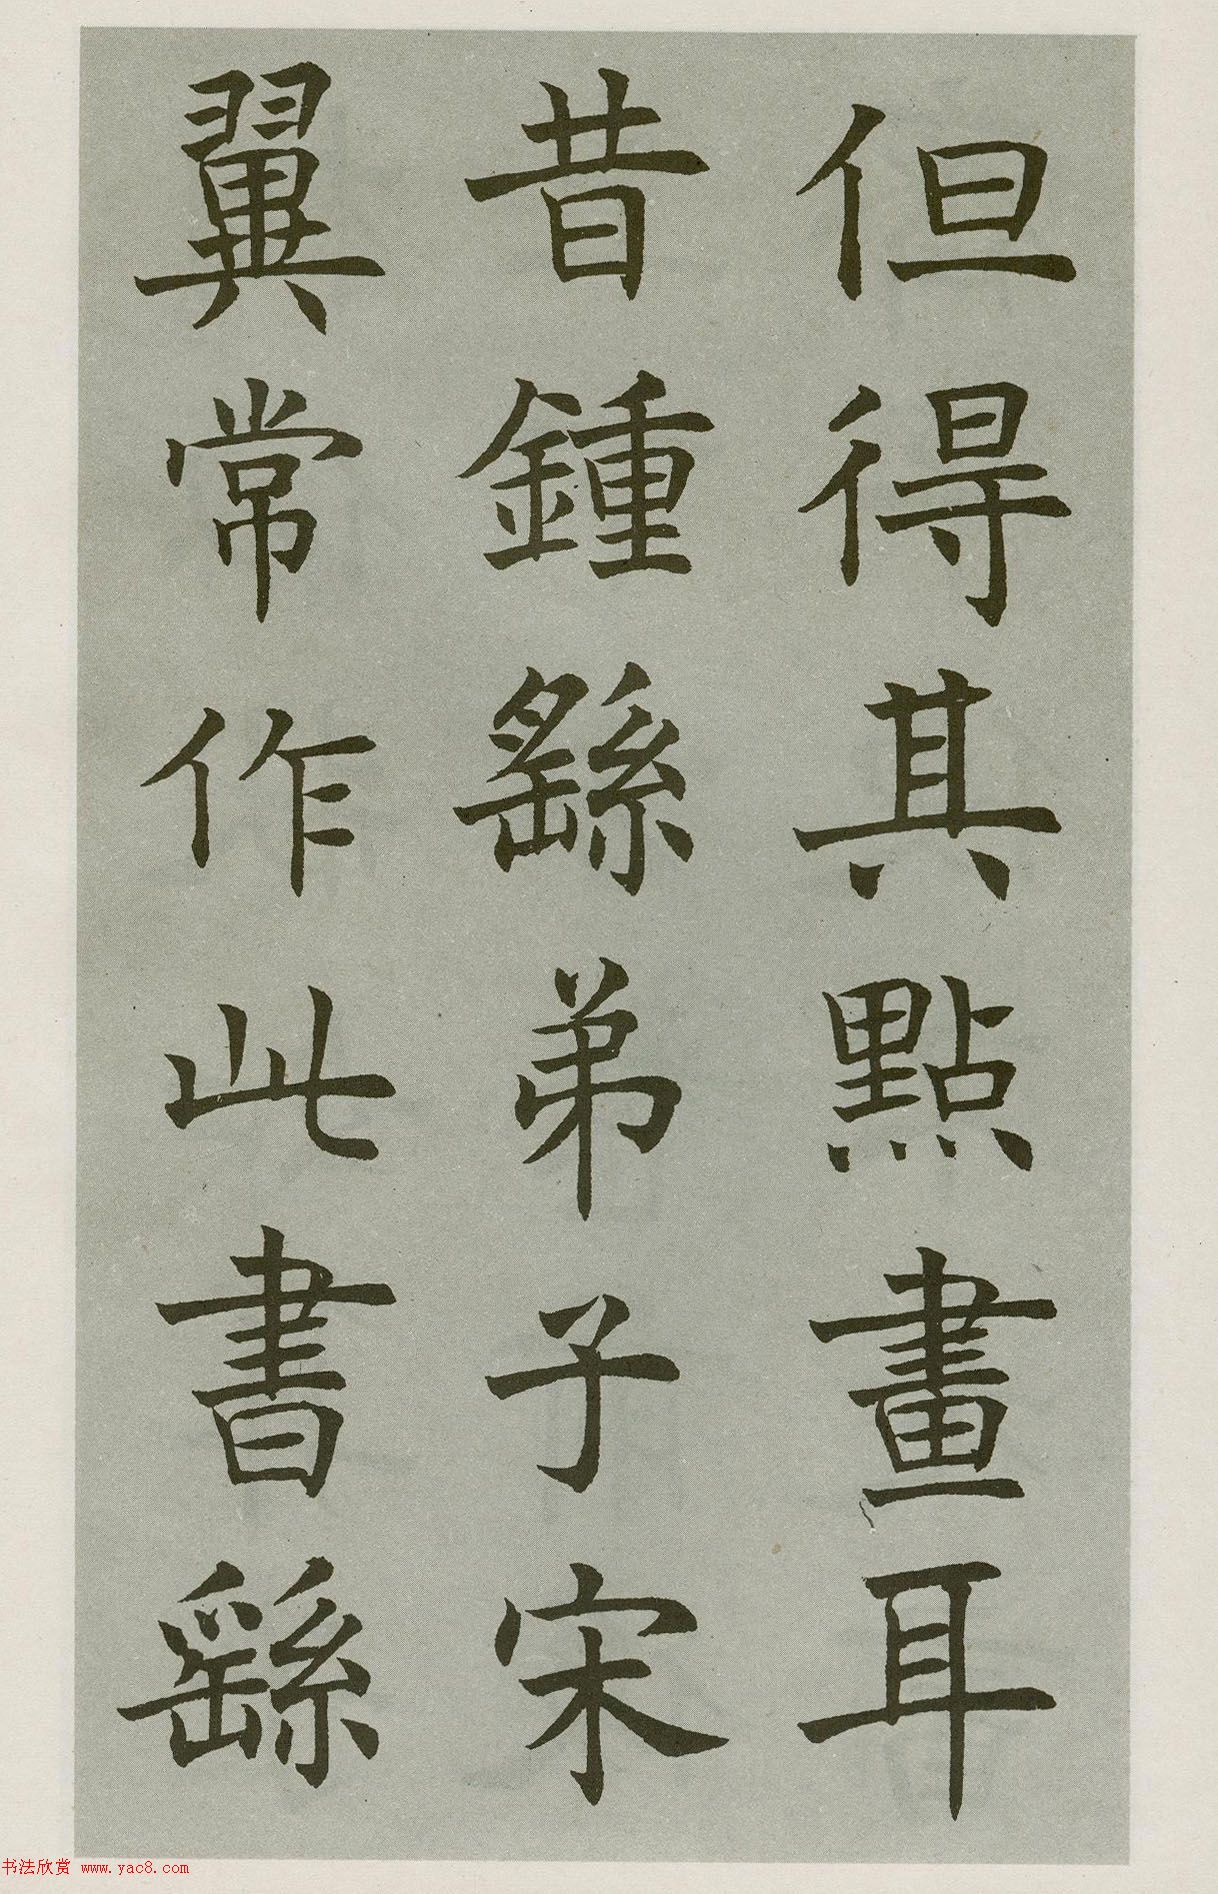 但得其點畫耳
昔鍾繇弟子宋
翼常作此書繇
书法欣赏 www.yac8.com